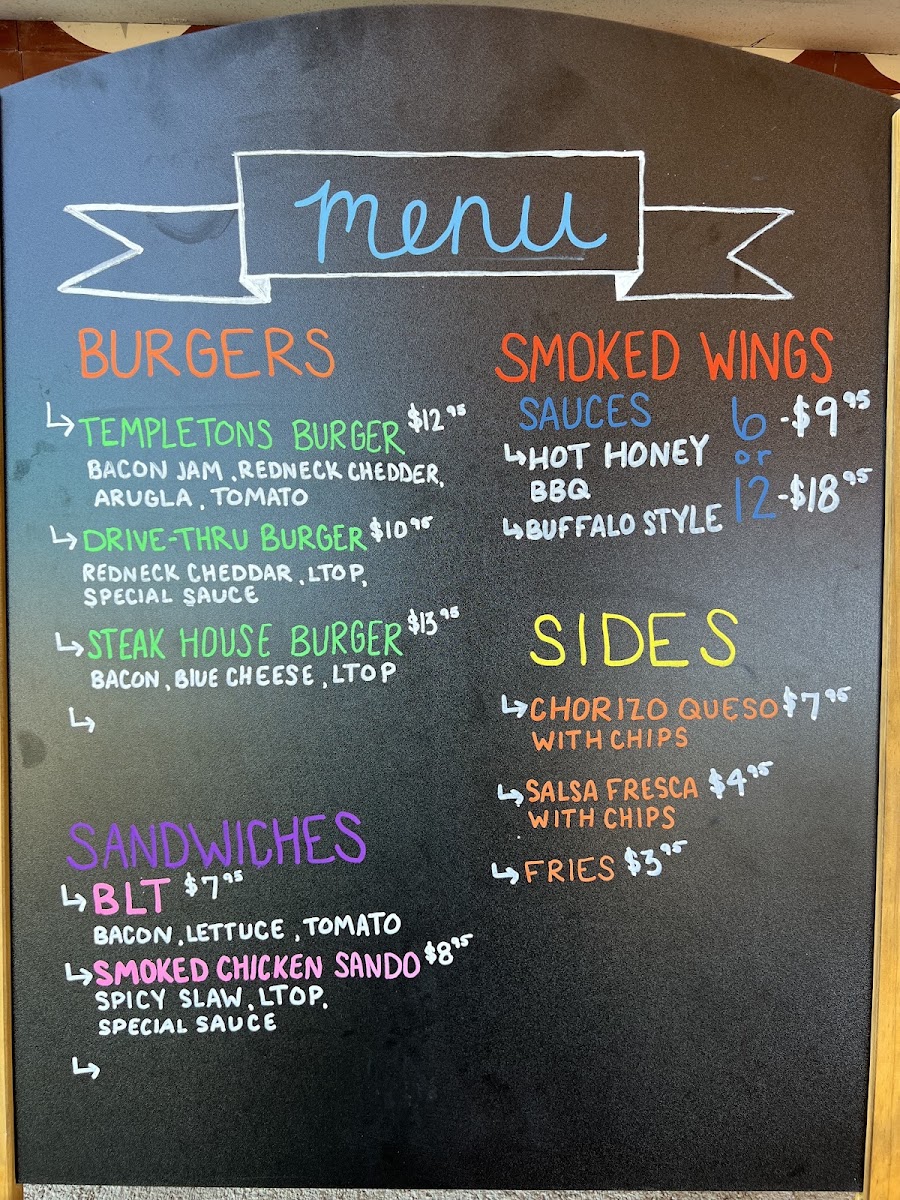 menu
BURGERS
↳ TEMPLETONS BURGER $12.95
BACON JAM, REDNECK CHEDDER,
ARUGLA, TOMATO
↳ DRIVE-THRU BURGER $10.95
REDNECK CHEDDAR, LTOP,
SPECIAL SAUCE
↳ STEAK HOUSE BURGER $13.95
BACON, BLUE CHEESE, LTOP
↳
SANDWICHES
↳ BLT $7.95
BACON, LETTUCE, TOMATO
↳ SMOKED CHICKEN SANDO $8.95
SPICY SLAW, LTOP,
SPECIAL SAUCE
↳
SMOKED WINGS
SAUCES
↳ HOT HONEY
BBQ
↳ BUFFALO STYLE
6 - $9.95
or
12 - $18.95
SIDES
↳ CHORIZO QUESO $7.95
WITH CHIPS
↳ SALSA FRESCA $4.95
WITH CHIPS
↳ FRIES $3.95